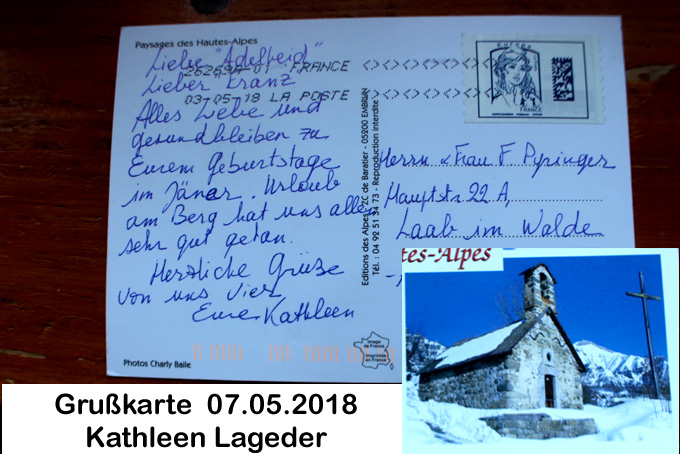 Paysages des Hautes-Alpes
Liebe "Adelheid"
Lieber Franz
26269A-01 FRANCE
03-05-18 LA POSTE
Alles Liebe und
gesundbleiben zu
Eurem Geburtstage
im Jänar. Urlaub
am Berg hat uns allen
sehr gut getan.
Herzliche Grüße
von uns vier
Eure Kathleen
Photos Charly Baile
Editions des Alpes - ZC de Baratier - 05200 EMBRUN
Tél. : 04 92 51 34 73 - Reproduction interdite
FRANCE
Herrn u Frau F. Pyringer
Hauptstr 22 A,
Laab im Walde
Image de France
Imprimée en France
tes-Alpes
Grußkarte 07.05.2018
Kathleen Lageder